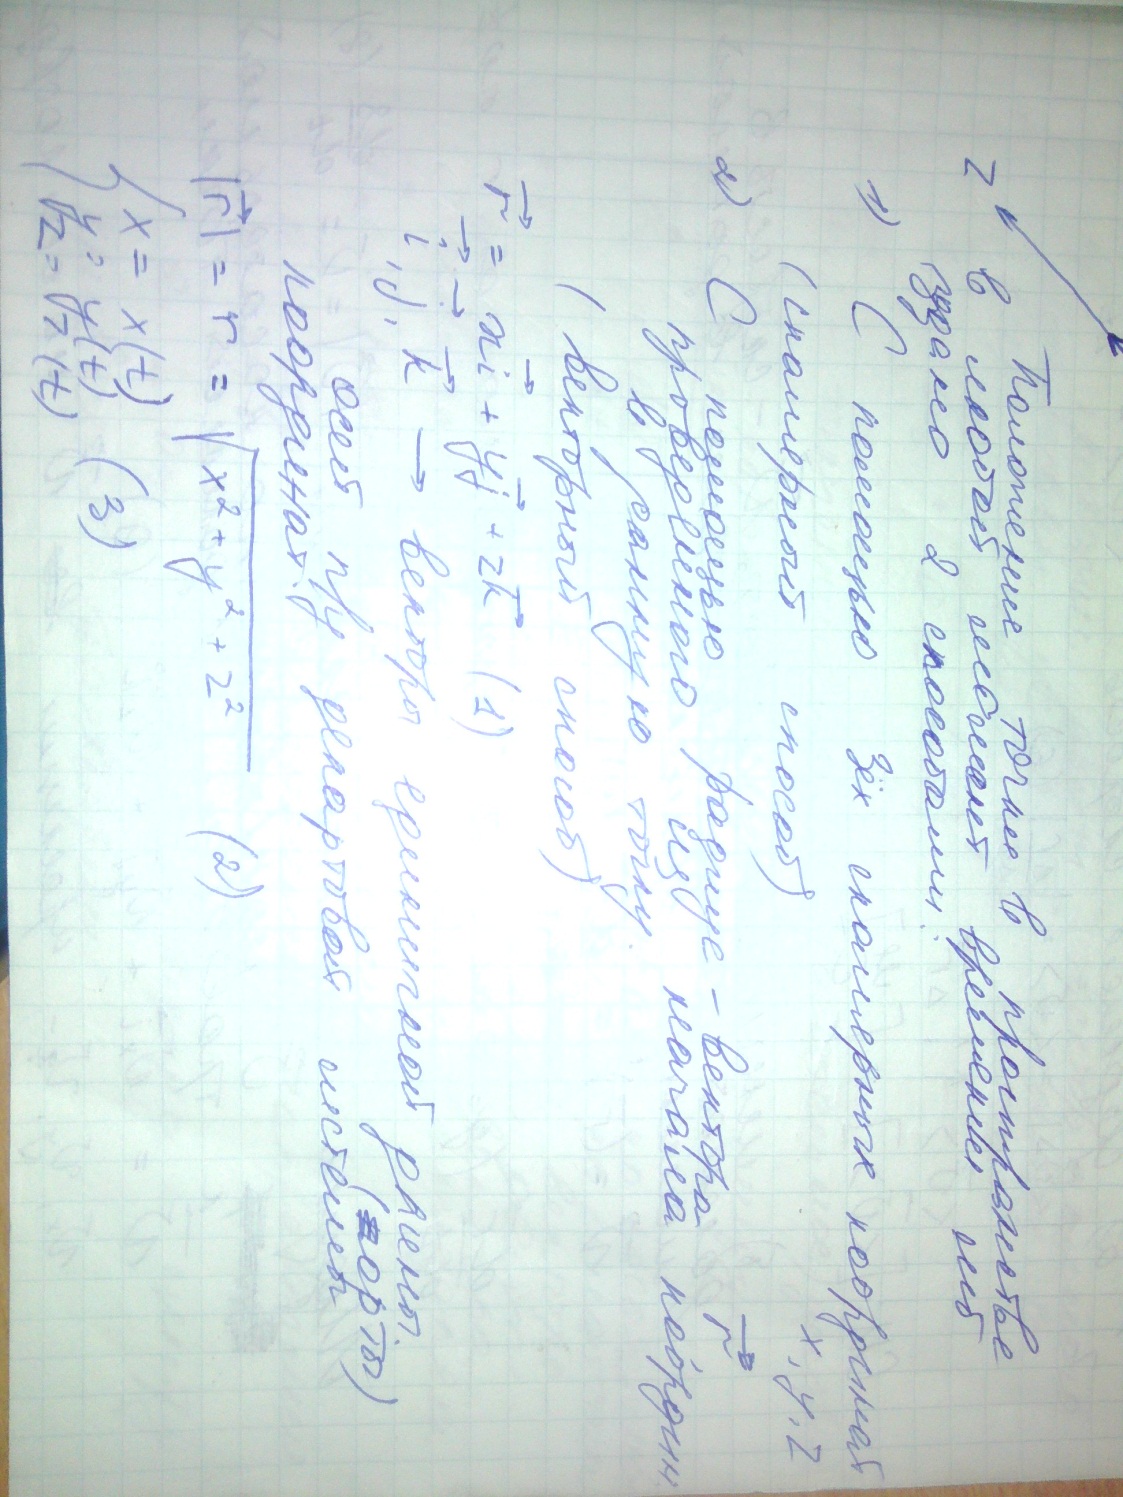 Положение точки в пространстве
в любой момент времени м.б.
задано 2 способами:
1) С помощью 3ёх скалярных координат x, y, z
(скалярный способ)
2) С помощью радиус-вектора r⃗
проведенного из начала координ.
в данную точку.
(векторный способ)
r⃗ = xi⃗ + yj⃗ + zk⃗ (1)
i⃗, j⃗, k⃗ → векторы единичной длины. (орты)
осей пр. декартовой системы
координат.
|r⃗| = r = √x² + y² + z² (2)
{ x = x(t)
y = y(t) (3)
z = z(t)